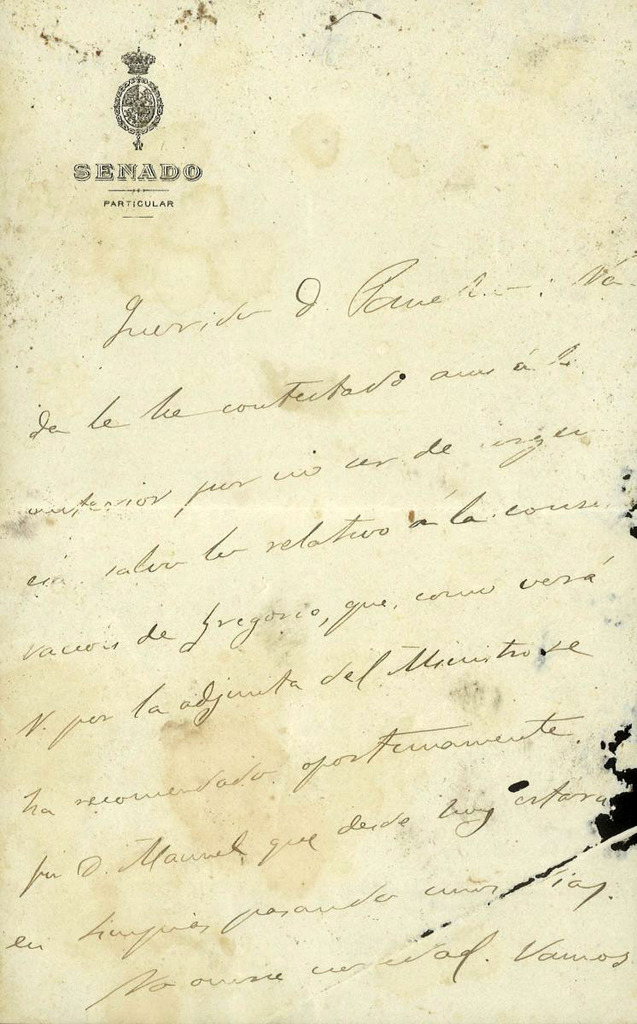 SENADO
PARTICULAR
Querido D. Na-
da le he contestado aun á la
anterior, por no ser de urgen
cia salvo lo relativo á la conser
vacion de Gregorio, que, como verá
V. por la adjunta del Ministro se
ha recomendado oportunamente.
por D. Manuel, que desde hoy estara
en Limpias pasando unos dias.
No ocurre novedad. Vamos